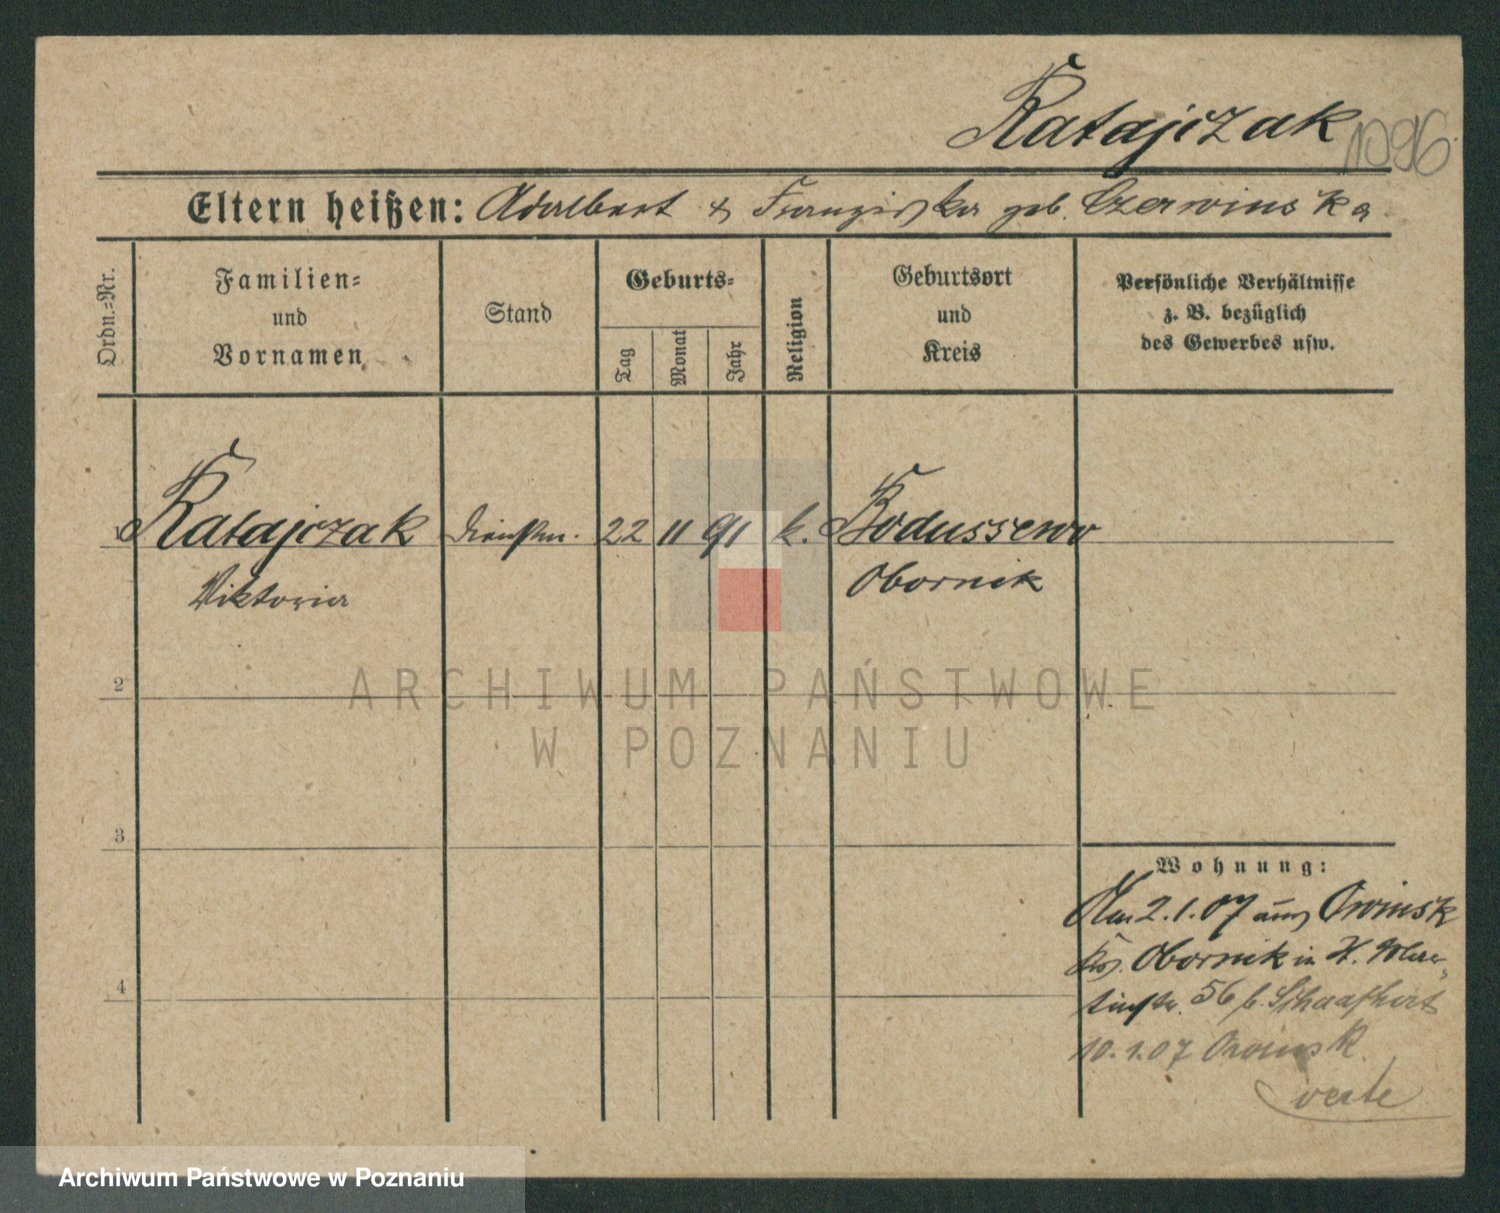 Ratajczak 1096
Eltern heißen: Adalbert & Franziska geb. Czerwinska
Ordn.=Nr.
Familien=
und
Vornamen
Stand
Geburts=
Tag
Monat
Jahr
Religion
Geburtsort
und
Kreis
Persönliche Verhältnisse
z. B. bezüglich
des Gewerbes usw.
1 Ratajczak Dienstm. 22 11 91 k. Bodussewo
Viktoria Obornik
2
3
4
Wohnung:
2.1.07 aus Owinsk
Krs. Obornik in H.
56 b. Schaafhert
10.1.07 Owinsk
verte
ARCHIWUM PAŃSTWOWE
W POZNANIU
Archiwum Państwowe w Poznaniu